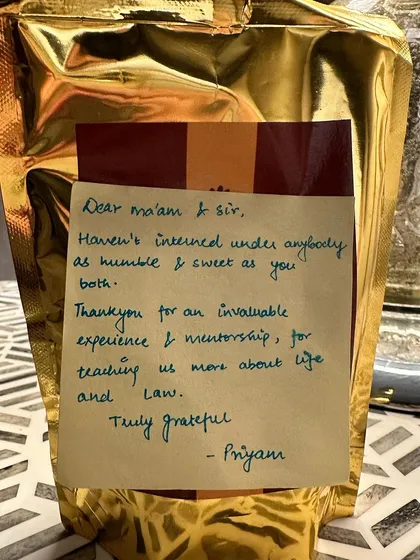 Dear ma'am & sir,
Haven't interned under anybody
as humble & sweet as you
both.
Thankyou for an invaluable
experience & mentorship, for
teaching us more about life
and Law.
Truly grateful
- Priyam